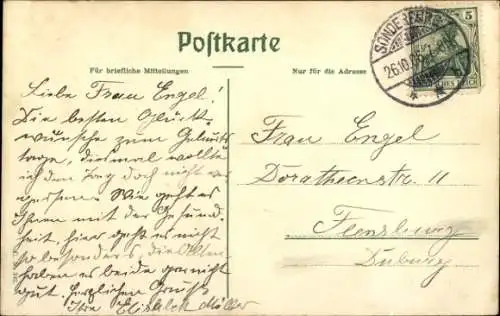 Postkarte
Für briefliche Mitteilungen
Nur für die Adresse
SONDERBURG
26.10.
5
Liebe Frau Engel!
Die besten Glück-
wünsche zum Geburts
tage, diesmal wollte
ich den Tag doch nicht ver
gessen. Wie geht es
Ihnen mit der Gesund-
heit, hier geht es nicht
so besonders, die Alten
haben es beide gar nicht
gut. Herzlichen Gruß
Ihre Elisabeth Möller
Frau Engel
Dorotheenstr. 11
Flensburg
Duburg